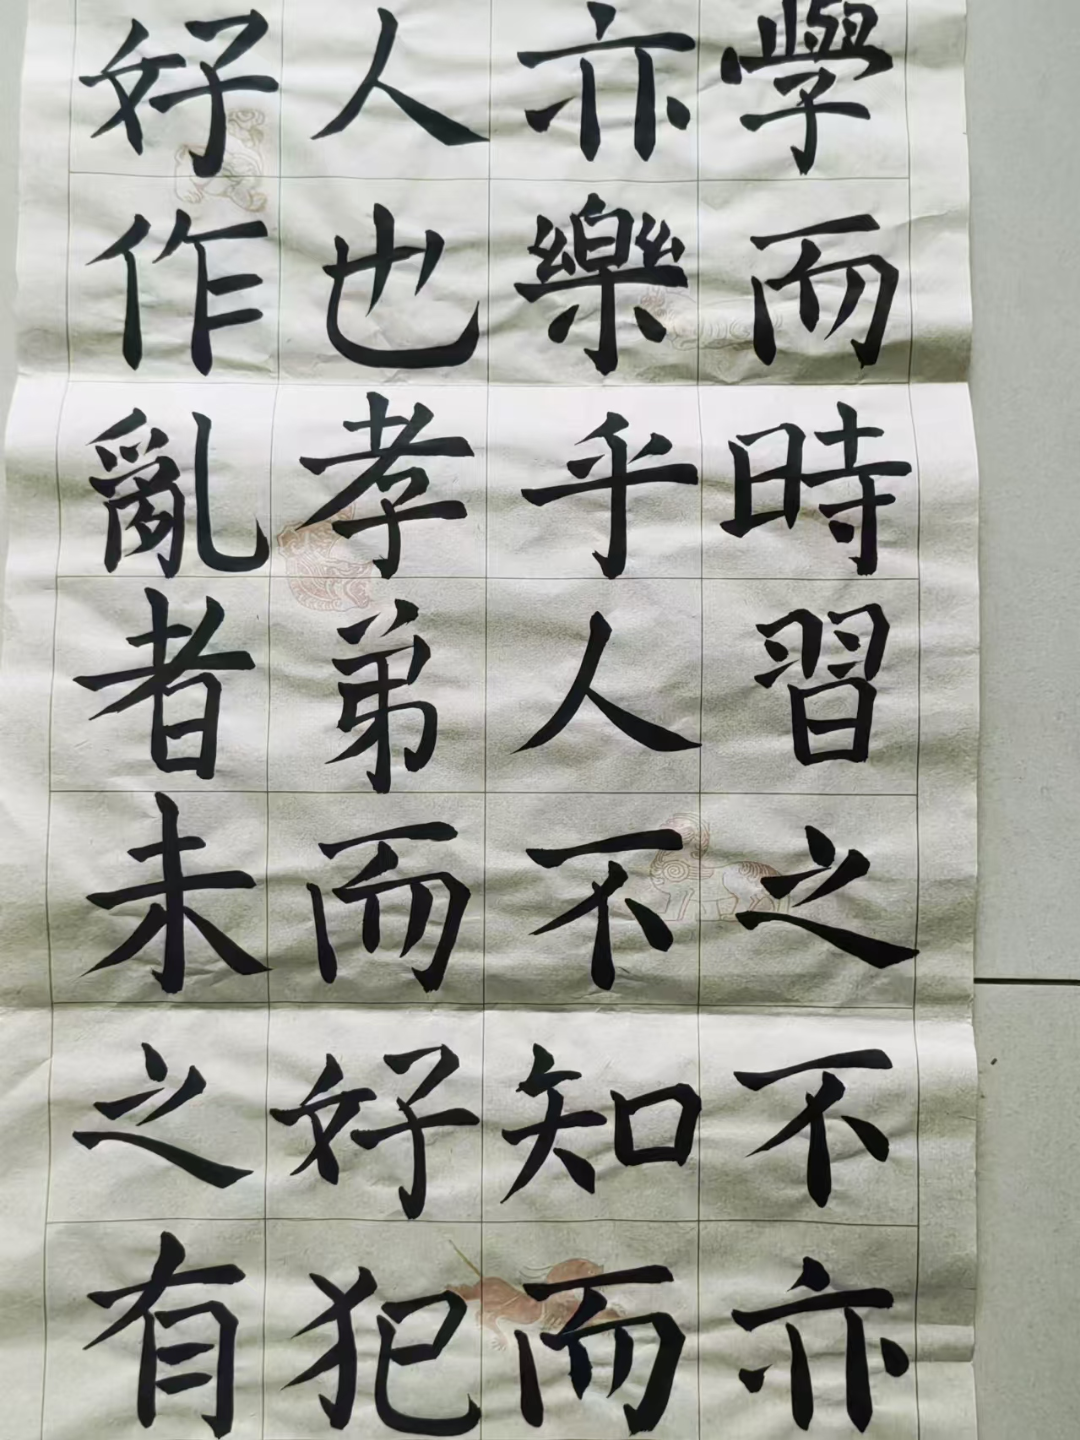 學而時習之不亦
亦樂乎人不知而
人也孝弟而好犯
好作亂者未之有